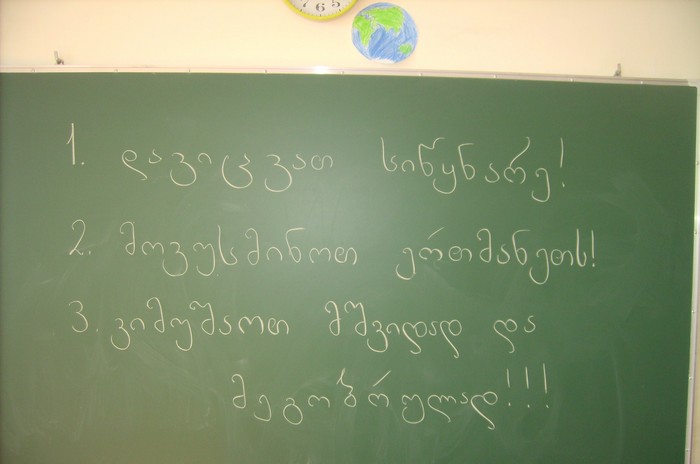 1. დავიცვათ სიწყნარე!
2. მოვუსმინოთ ერთმანეთს!
3. ვიმუშაოთ მშვიდად და
მეგობრულად!!!